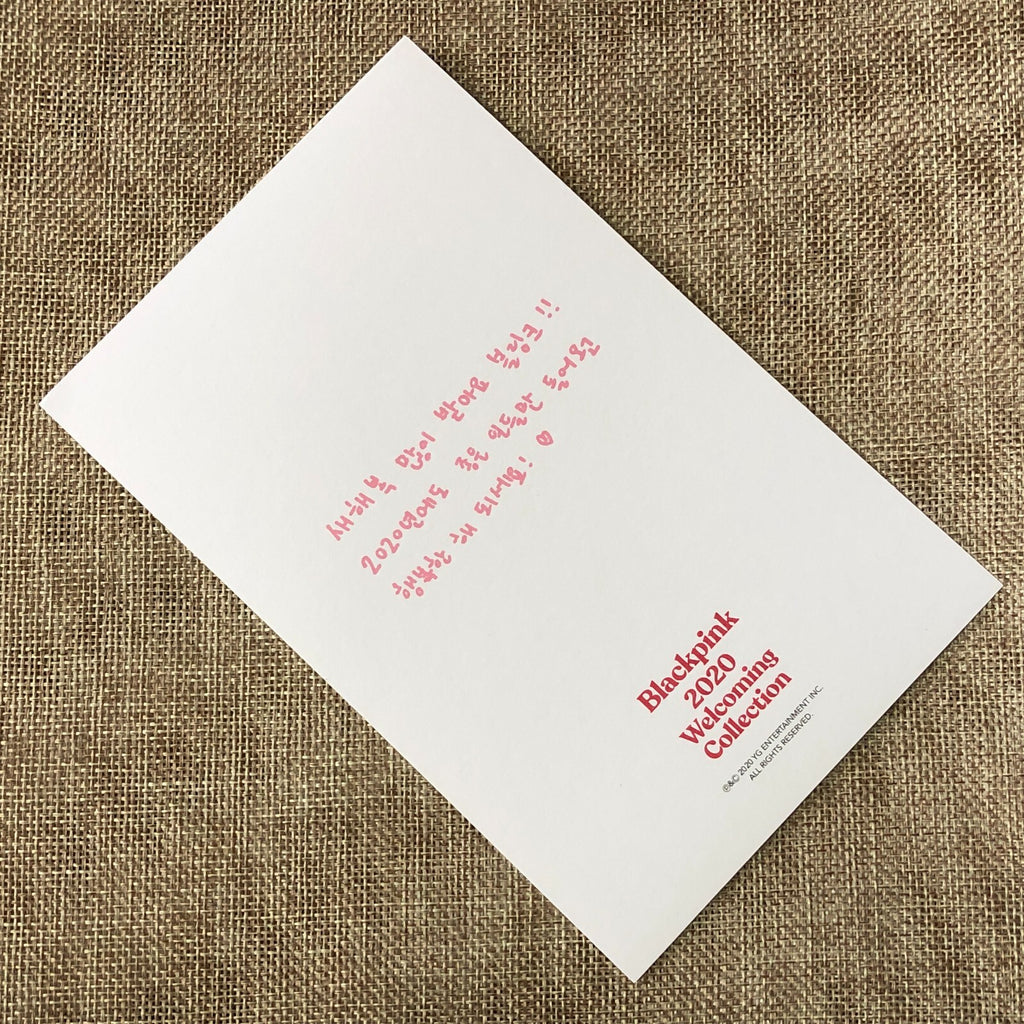 새해복 많이 받아요 블링크!!
2020년에도 좋은 일들만 들어와
행복한 한 해 되세요! ♡
Blackpink
2020
Welcoming
Collection
℗&© 2020 YG ENTERTAINMENT INC.
ALL RIGHTS RESERVED.